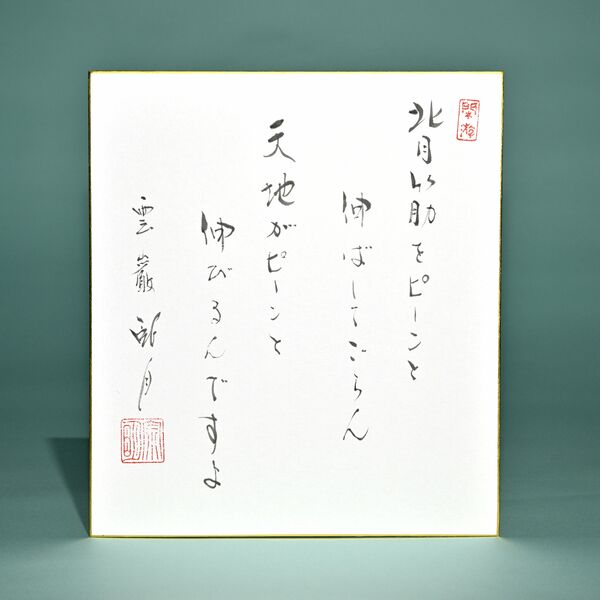 背筋をピーンと
伸ばしてごらん
天地がピーンと
伸びるんですよ
雲巌 月